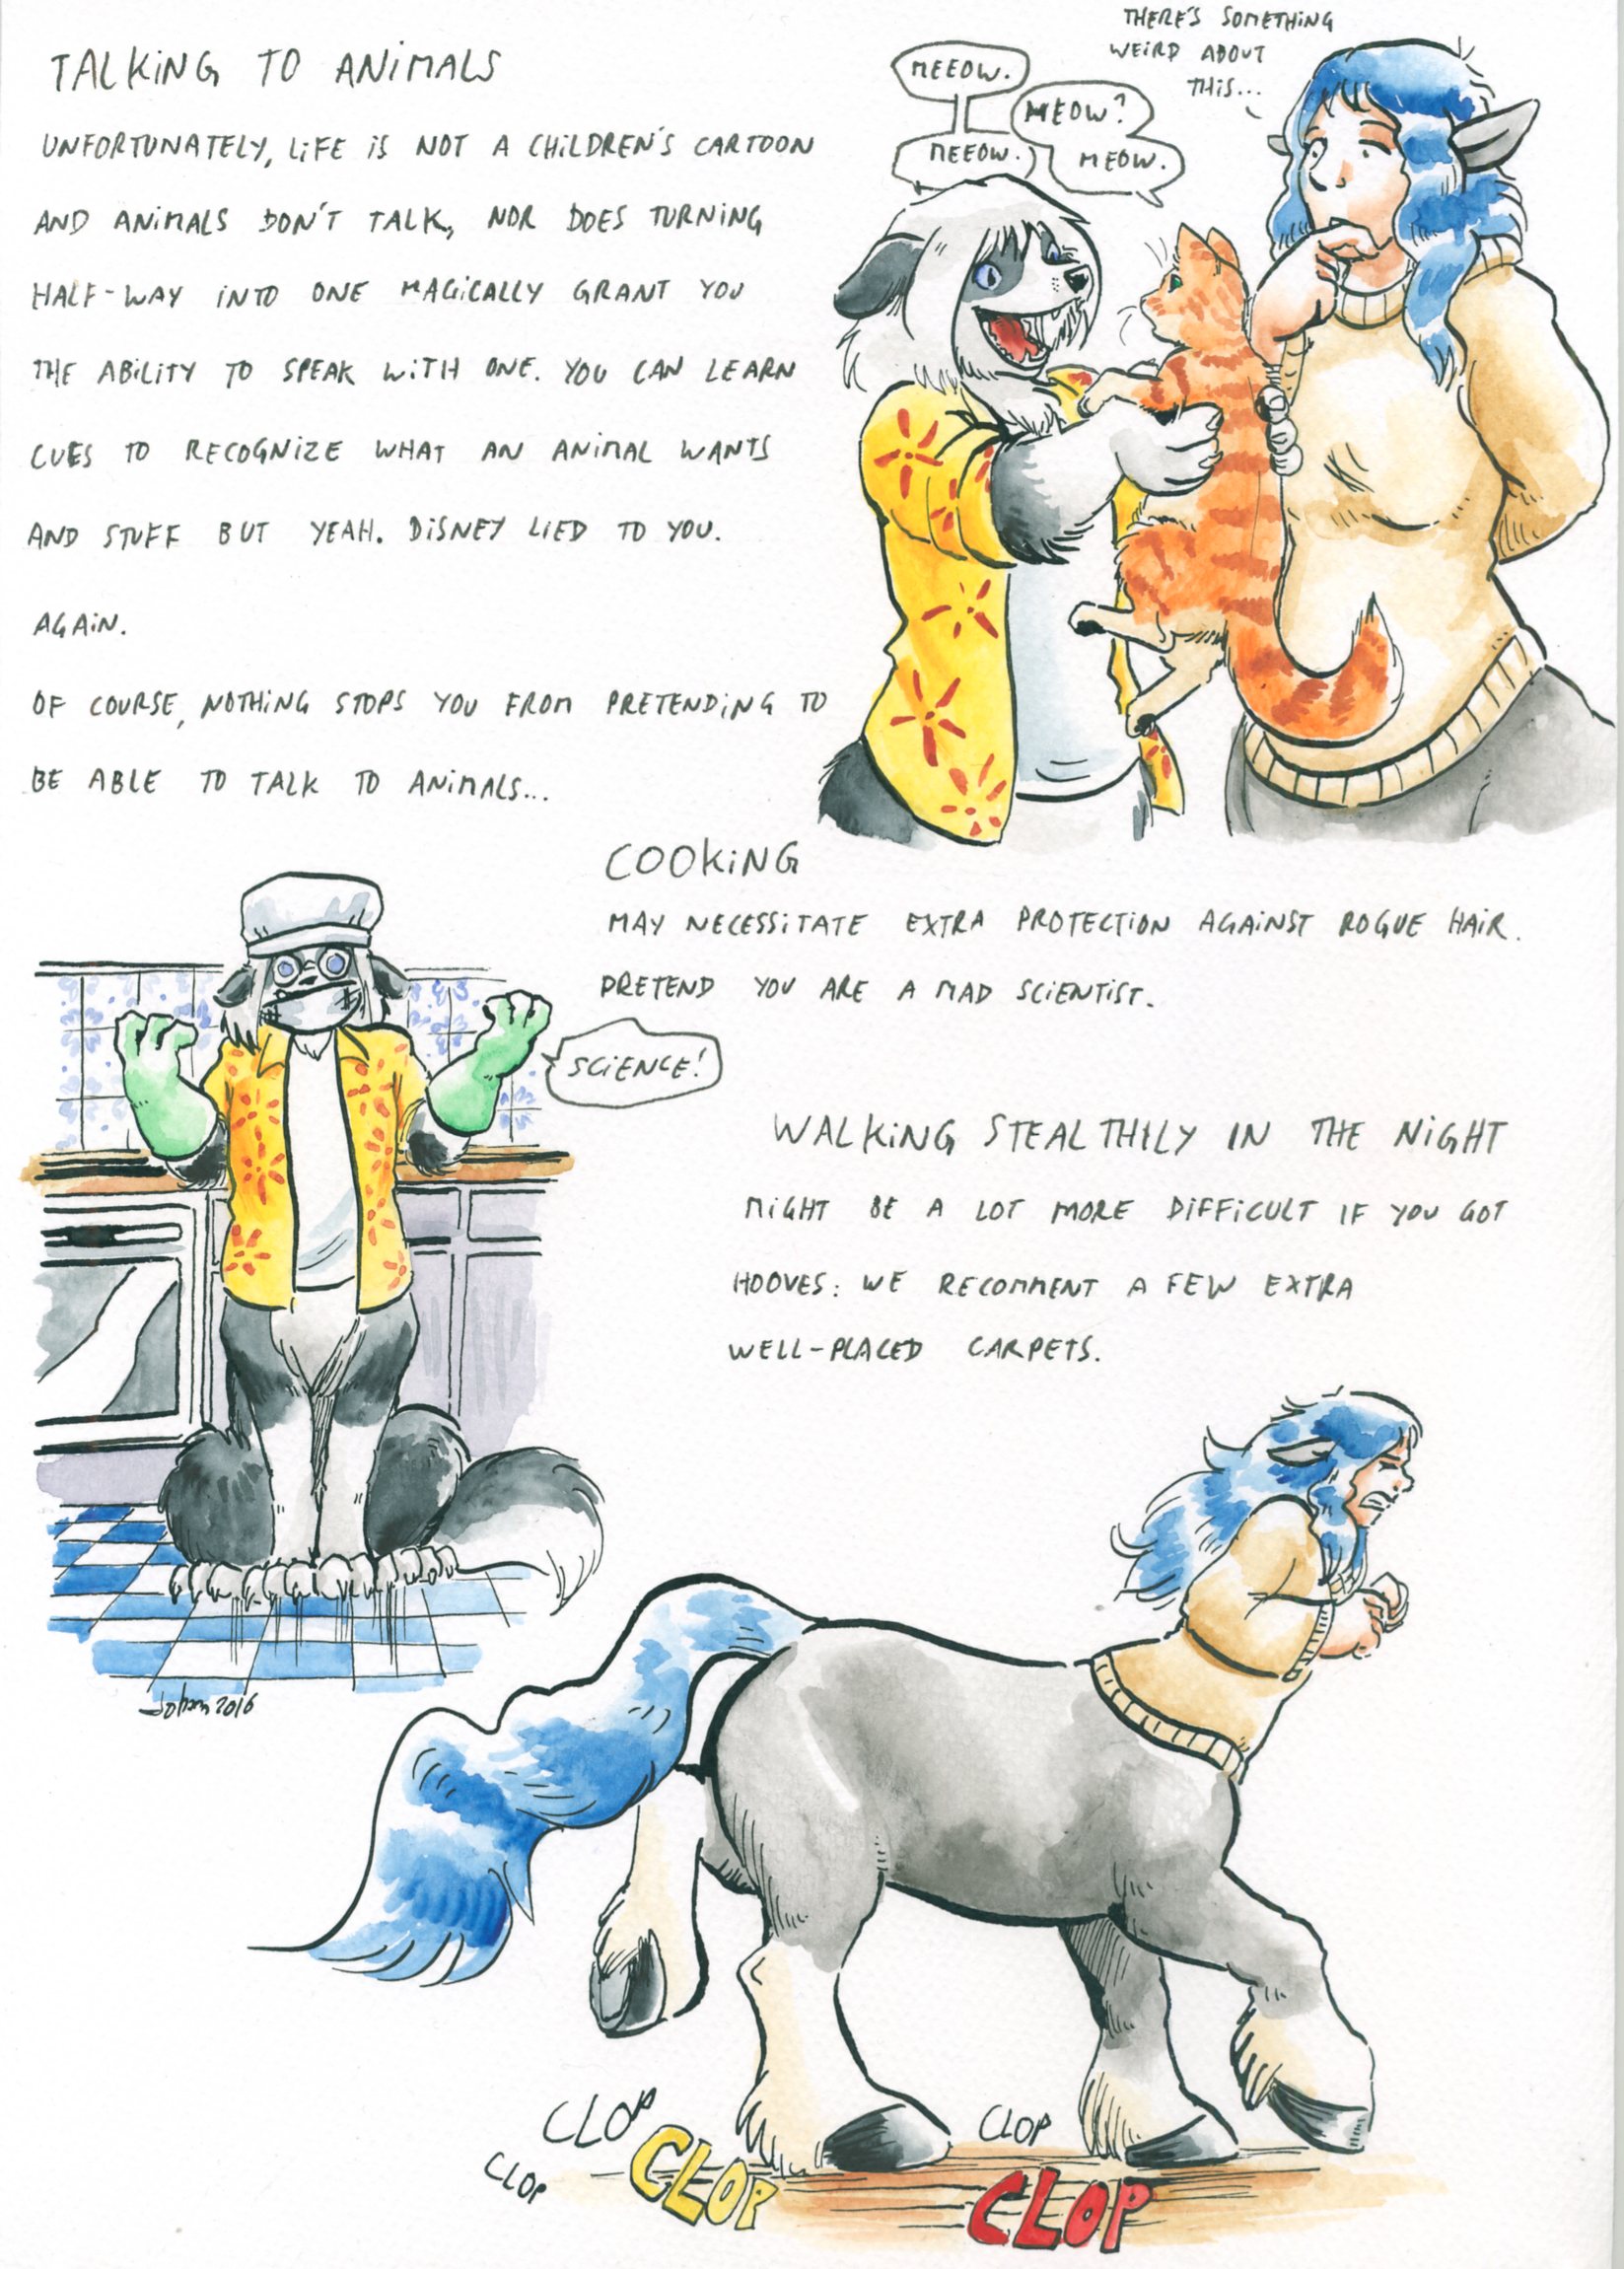 TALKING TO ANIMALS
UNFORTUNATELY, LIFE IS NOT A CHILDREN'S CARTOON
AND ANIMALS DON'T TALK, NOR DOES TURNING
HALF-WAY INTO ONE MAGICALLY GRANT YOU
THE ABILITY TO SPEAK WITH ONE. YOU CAN LEARN
CUES TO RECOGNIZE WHAT AN ANIMAL WANTS
AND STUFF BUT YEAH. DISNEY LIED TO YOU.
AGAIN.
OF COURSE, NOTHING STOPS YOU FROM PRETENDING TO
BE ABLE TO TALK TO ANIMALS...
MEEOW.
MEEOW.
MEOW?
MEOW.
THERE'S SOMETHING
WEIRD ABOUT
THIS...
COOKING
MAY NECESSITATE EXTRA PROTECTION AGAINST ROGUE HAIR.
PRETEND YOU ARE A MAD SCIENTIST.
SCIENCE!
WALKING STEALTHILY IN THE NIGHT
MIGHT BE A LOT MORE DIFFICULT IF YOU GOT
HOOVES: WE RECOMMENT A FEW EXTRA
WELL-PLACED CARPETS.
2016
CLOP
CLOP
CLOP
CLOP
CLOP